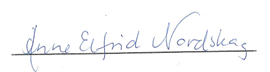 Anne Elfrid Nordskag